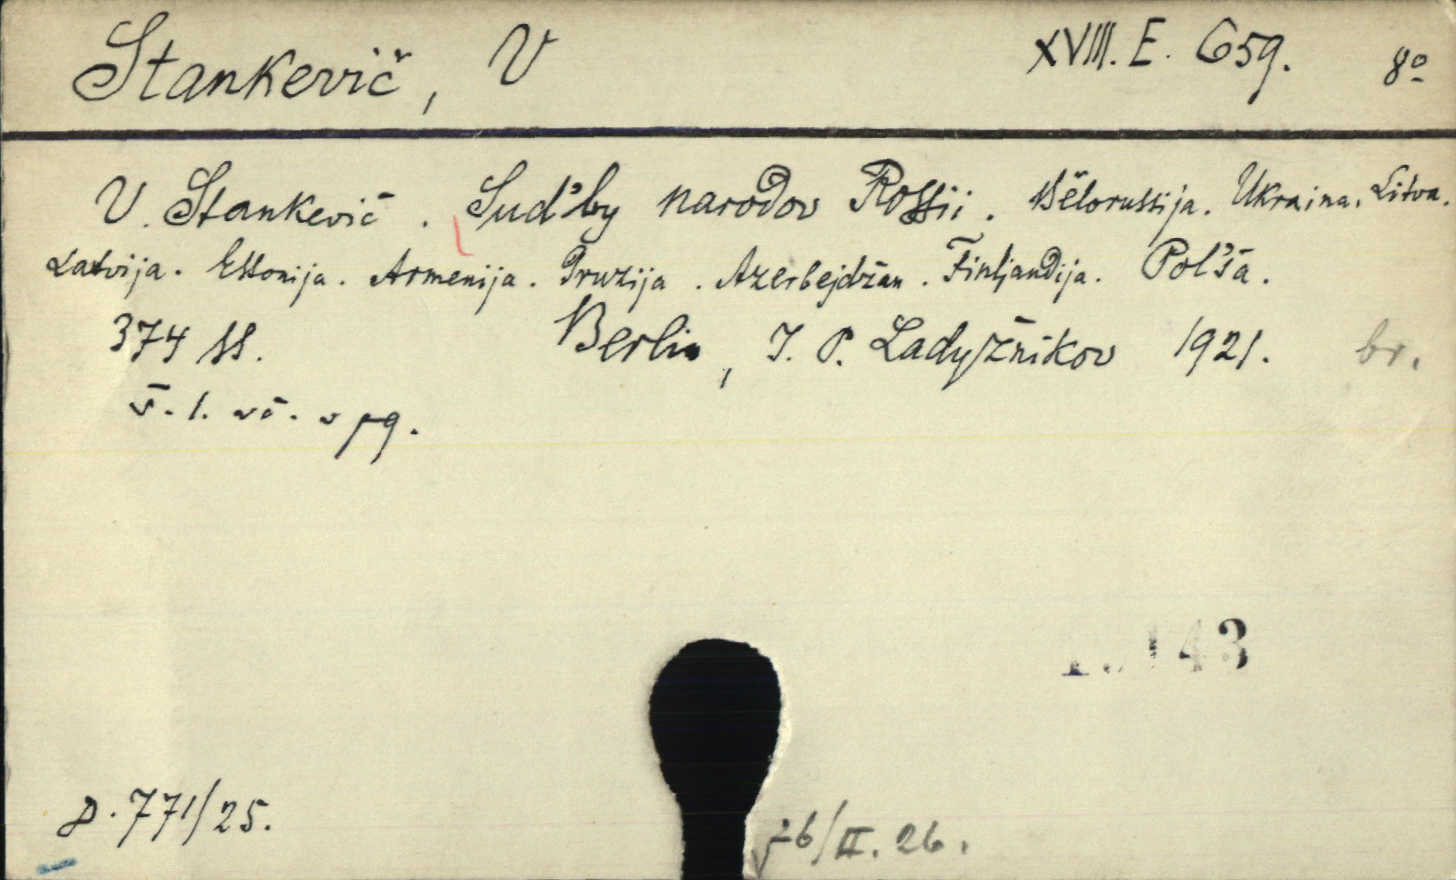 Stankevič, V XVIII. E. 659. 8º
V. Stankevič. Sud'by narodov Rossii. Bělorussija. Ukraina. Litva.
Latvija. Estonija. Armenija. Gruzija. Azerbejdžan. Finljandija. Pol'ša.
374 ss. Berlin, I. P. Ladyžnikov 1921. br.
43
D. 771/25.
/II. 26.